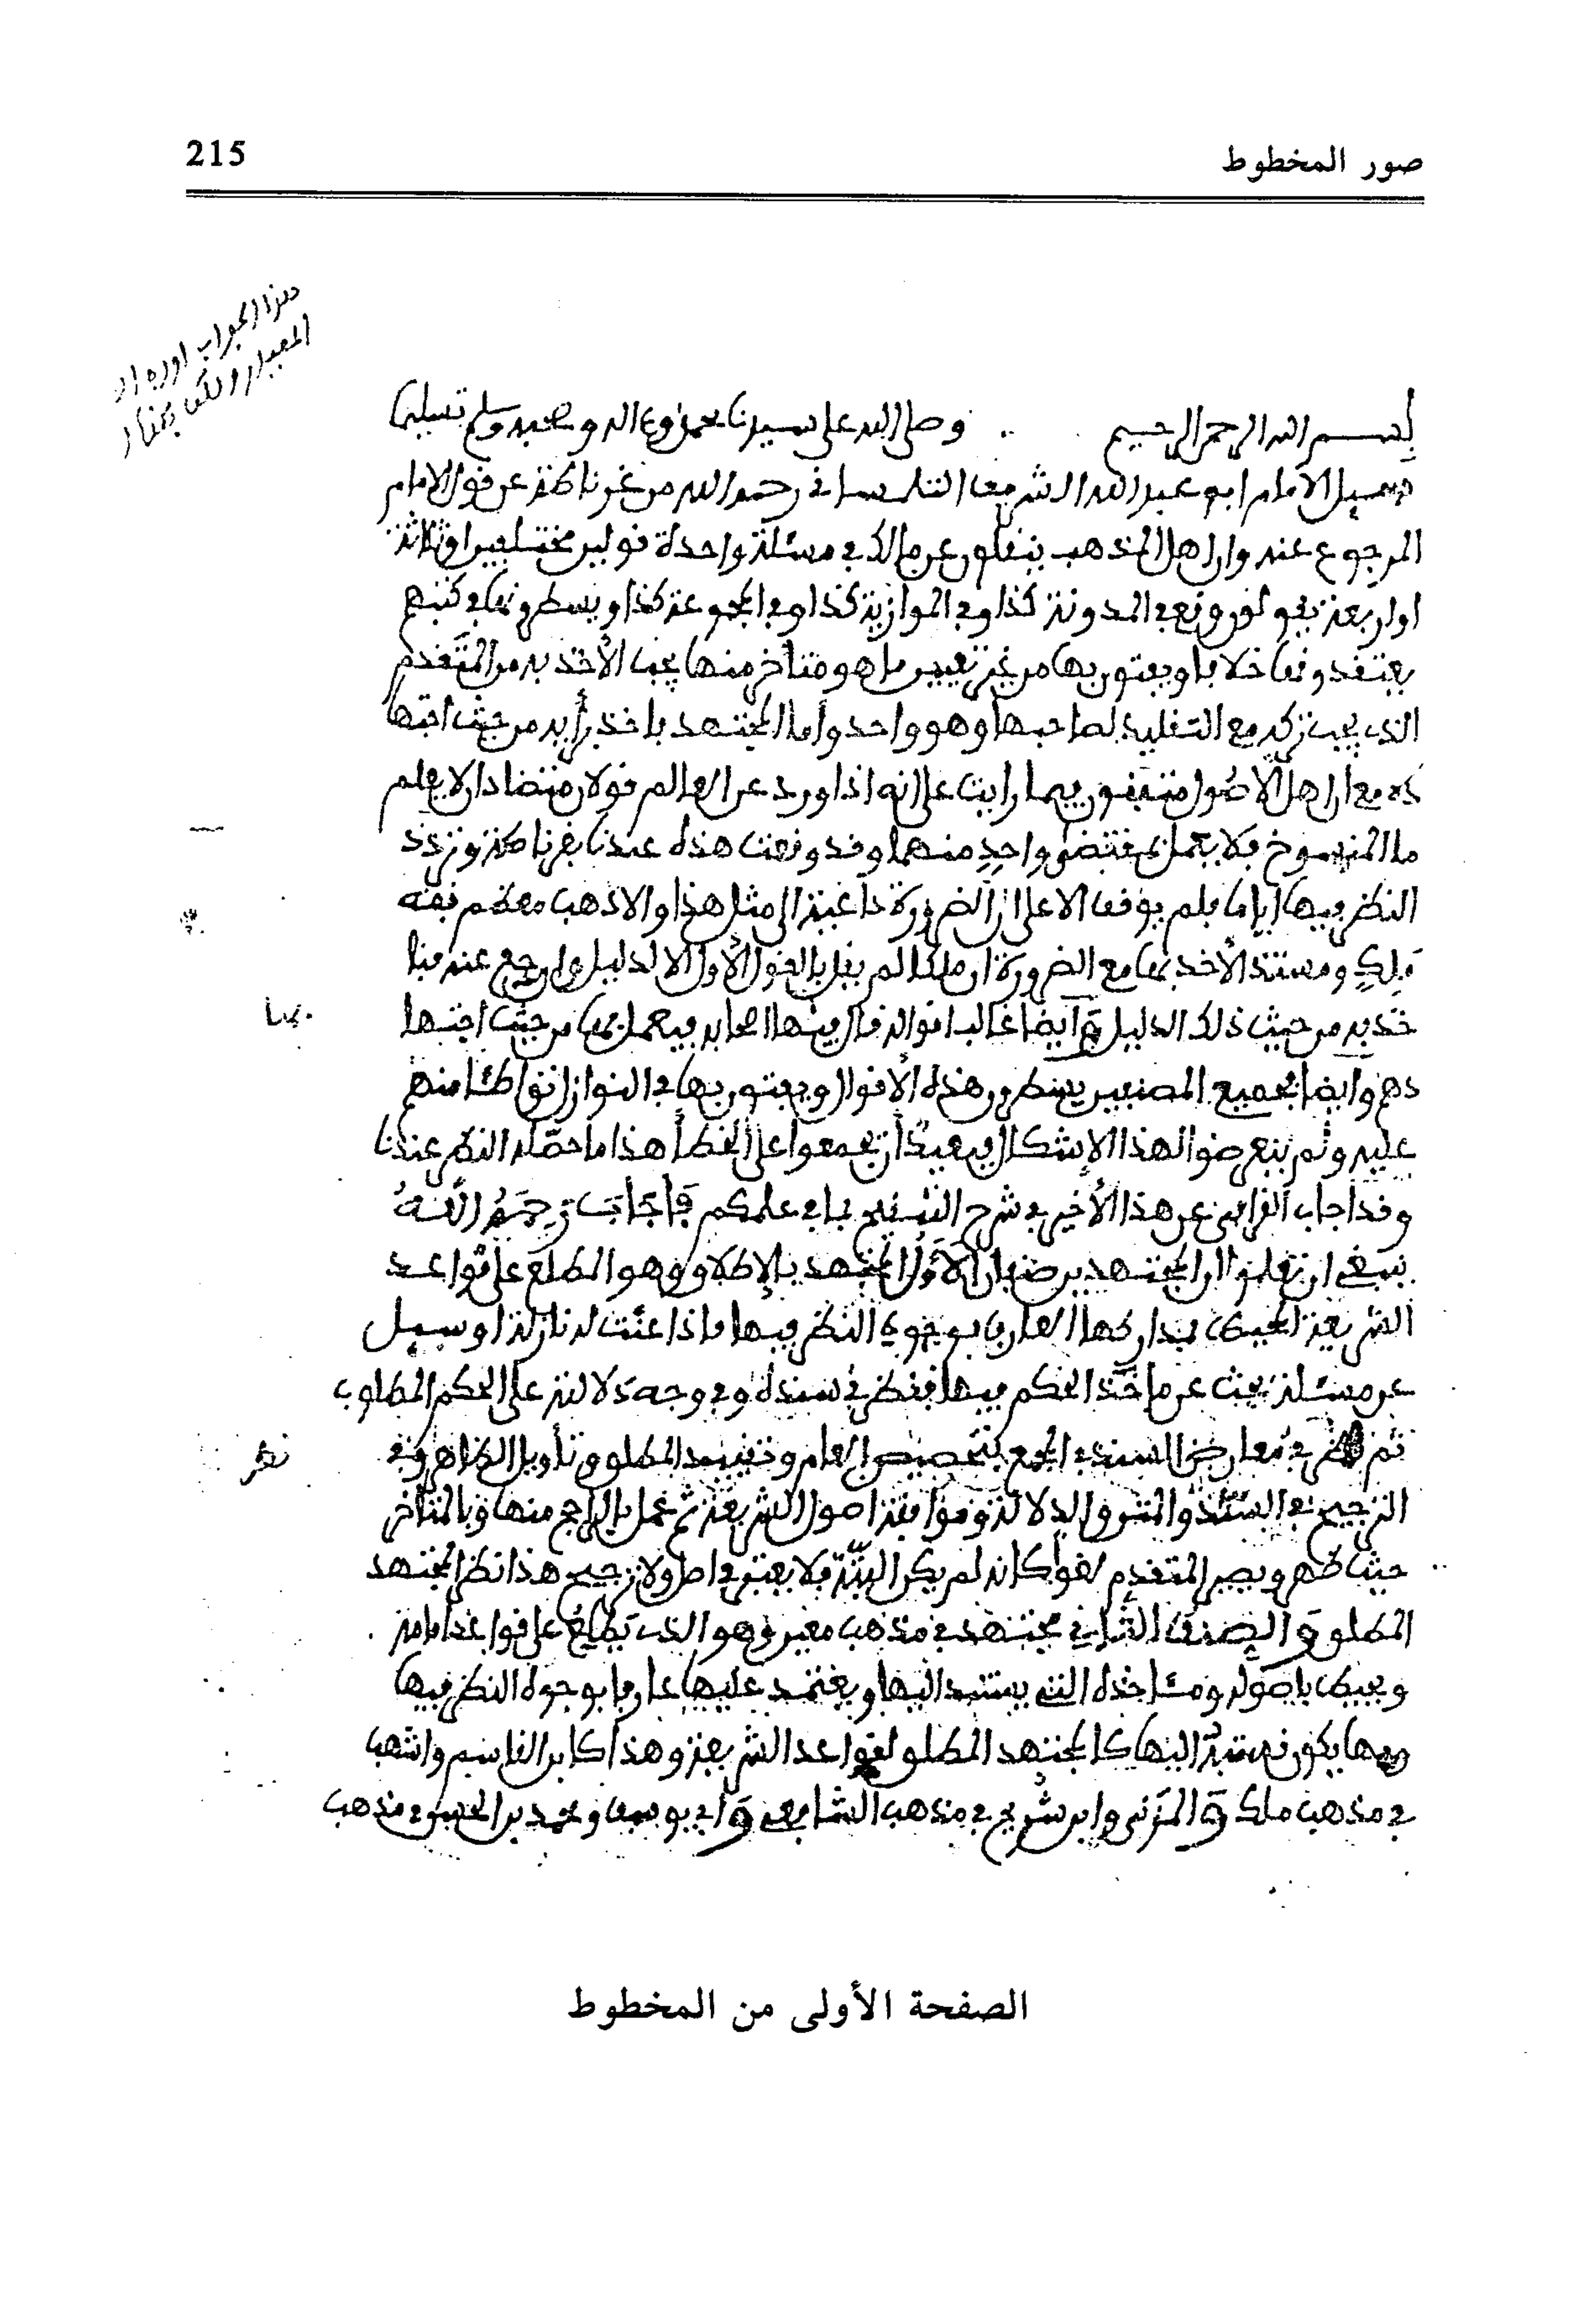 صور المخطوط
215
هذا الجواب اورده
المعيار
بسم الله الرحمن الرحيم وصلى الله على سيدنا محمد وعلى اله وصحبه وسلم تسليما
وسيل الامام ابو عبد الله الشريف التلمساني رحمه الله من غرناطة عن قول الامام
المرجوع عنه وان اهل المذهب ينقلون عن مالك في مسئلة واحدة قولين مختلفين او ثلاثة
او اربعة يقولون وقع في المدونة كذا وفي الموازية كذا وفي المجموعة كذا ويسطرونها في كتبهم
يعتقدونها خلافا ويفتون بها من غير تعيين ما هو متأخر منها يجب الأخذ به من المتقدم
الذي يجب تركه مع التقليد لصاحبها وهو واحد وأما المجتهد ياخذ برأيه من حيث اجتها
ده مع ان اهل الأصول متفقون فيما رايت على انه اذا ورد عن العالم قولان متضادان لا يعلم
ما المنسوخ فلا يعمل بمقتضى واحدٍ منهما وقد وقعت هذه عندنا بغرناطة وتردد
النظر فيها اياما فلم يوقف الا على ان الضرورة داعية الى مثل هذا والا ذهب معظم فقه
مٰلك ومستند الأخذ بها مع الضرورة ان ملكا لم يقل بالقول الأول الا لدليل وان رجع عنه فنا
خذ به من حيث ذلك الدليل وأيضا غالب اقواله قال بها اصحابه فيعمل بها من حيث اجتها
بها
دهم وايضا فجميع المصنفين يسطرون هذه الأقوال ويفتون بها في النوازل تواطئا منهم
عليه ولم يتعرضوا لهذا الإشكال فبعيدٌ أن يجمعوا على الخطأ هذا ما حصّله النظر عندنا
وقد اجاب القرافي عن هذا الأخير في شرح التنقيح بما في علمكم فأجاب رحمه الله
ينبغي ان تعلموا ان المجتهدين ضربان الأول المجتهد بالإطلاق وهو المطلع على قواعد
الشريعة المحيط بمداركها العارف بوجوه النظر فيها فاذا عنّت له نازلة او سيل
عن مسئلة بحث عن ماخذ الحكم فيها فنظر في سنده وفي وجه دلالته على الحكم المطلوب
ثم نظر في معارض السند في الجمع بتخصيص العام وتقييد المطلق وتأويل الظاهر وفي
نظر
الترجيح في السند والمتن والدلالة وموافقة اصول الشريعة ثم عمل بالراجح منها وبالمتأخر
حيث ظهر ويصير المتقدم لغوا كانه لم يكن البتّة فلا يعتبر في اصل ولا ترجيح هذا نظر المجتهد
المطلق والصنف الثاني مجتهد في مذهب معين وهو الذي يطلع على قواعد امامه
ويحيط باصوله ومئاخذه التي يستند اليها ويعتمد عليها عارفا بوجوه النظر فيها
يكون نسبته اليها كالمجتهد المطلق لقواعد الشريعة وهذا كابن القاسم واشهب
في مذهب ملك والمزني وابن سُريج في مذهب الشافعي وابي يوسف ومحمد بن الحسن في مذهب
الصفحة الأولى من المخطوط